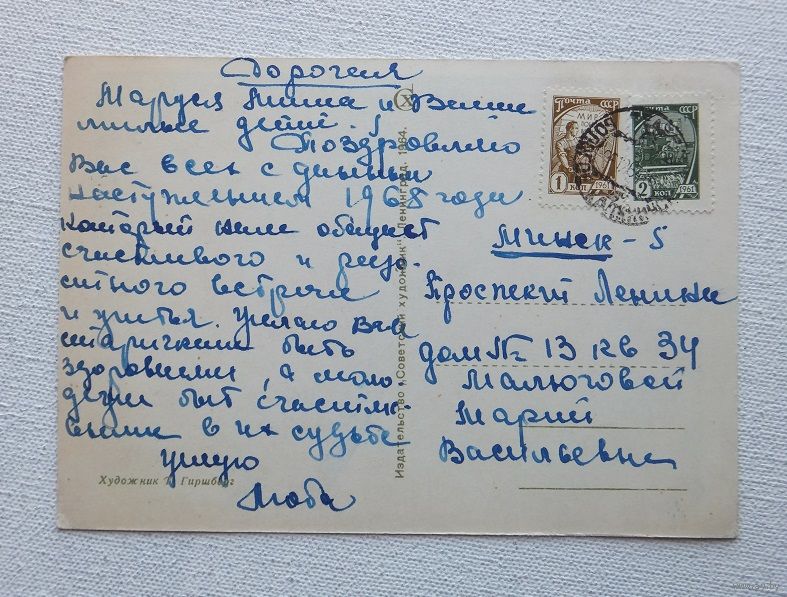 Дорогая
Маруся Миша и Ваши
милые дети.
Поздровляю
Вас всех с
наступлением 1968 годи
который нам обещает
счастливого и
встречи
и Желаю Вам
быть
здоровыми, а моло
дежи быт счастли-
выми в их судьбе
Целую
Люба
Художник Гиршберг
Издательство „Советский художник“ Ленинград. 1964.
Почта СССР
МИР
1 КОП 1961
Почта СССР
2 КОП 1961
Минск - 5
Проспект Ленина
дом № 13 кв 34
Малюговой
Марий
Васильевне